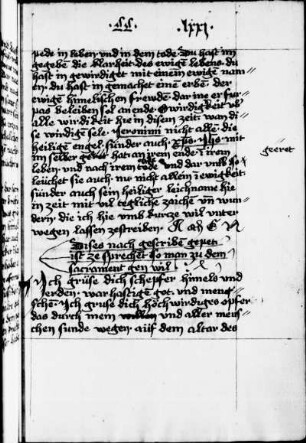 lxxi
rede in leben vnd in dem tode Du hast im
gegebē die klarheit des ewigē lebens du
hast in gewirdiget mit einem ewigē nam
en du hast in gemachet einē erbē der
ewigē himelischen frewdē dar inē er fur
bas beleiben sol an ende O wirdigkeit vb
alle wirdikeit hie in disem zeit wan di
se wirdige sele Jeronimi nicht allein die
heiligē engel sunder auch xps ihs mit
im selber hat an irem ende in irem
geeret
leben vnd nach irem vnd dar vmb so
leichtet sie auch nu nicht allein in ewigkeit
sunder auch sein heiliger leichname hie
in zeit mit vil tegliche zaichē vn wun
dern die ich hie vmb kurze wil vnter
wegen lassen zestreiben
Dises nach gescribē gepet
ist ze sprechen so man zu dem
sacrament gen wil
Ich gruse dich schepfer himels vnd
erden warhafftigē got vnd meng
schē Ich gruse dich hochwirdiges opfer
das durch mein vnd aller mens
chen sunde wegen auff dem altar des